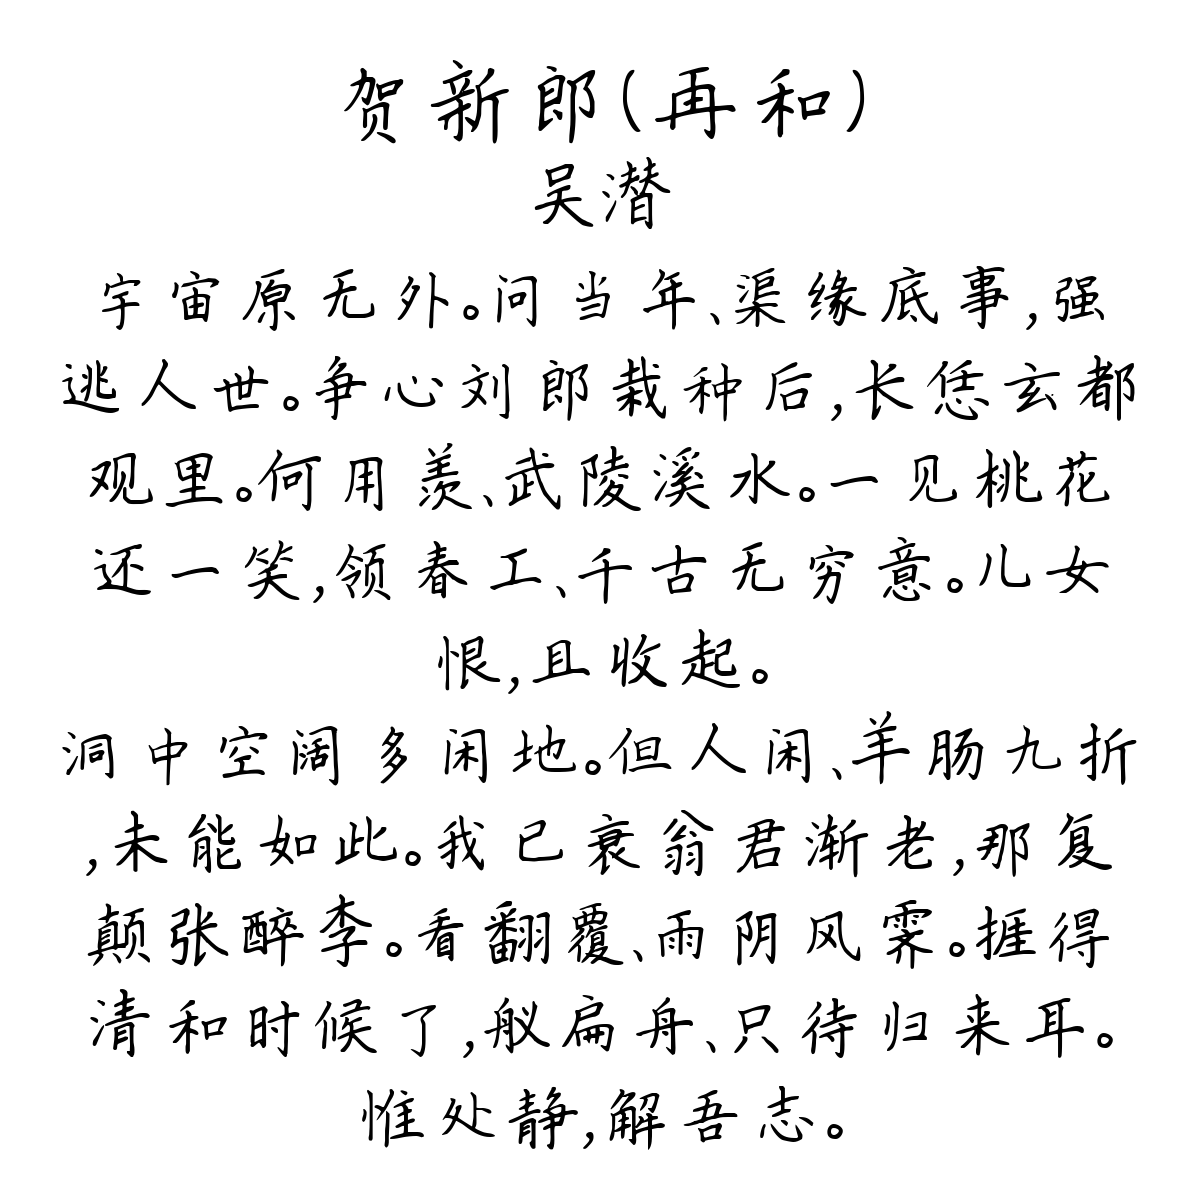 贺新郎(再和)
吴潜
宇宙原无外。问当年、渠缘底事,强
逃人世。争心刘郎栽种后,长恁玄都
观里。何用羡、武陵溪水。一见桃花
还一笑,领春工、千古无穷意。儿女
恨,且收起。
洞中空阔多闲地。但人闲、羊肠九折
,未能如此。我已衰翁君渐老,那复
颠张醉李。看翻覆、雨阴风霁。捱得
清和时候了,舣扁舟、只待归来耳。
惟处静,解吾志。